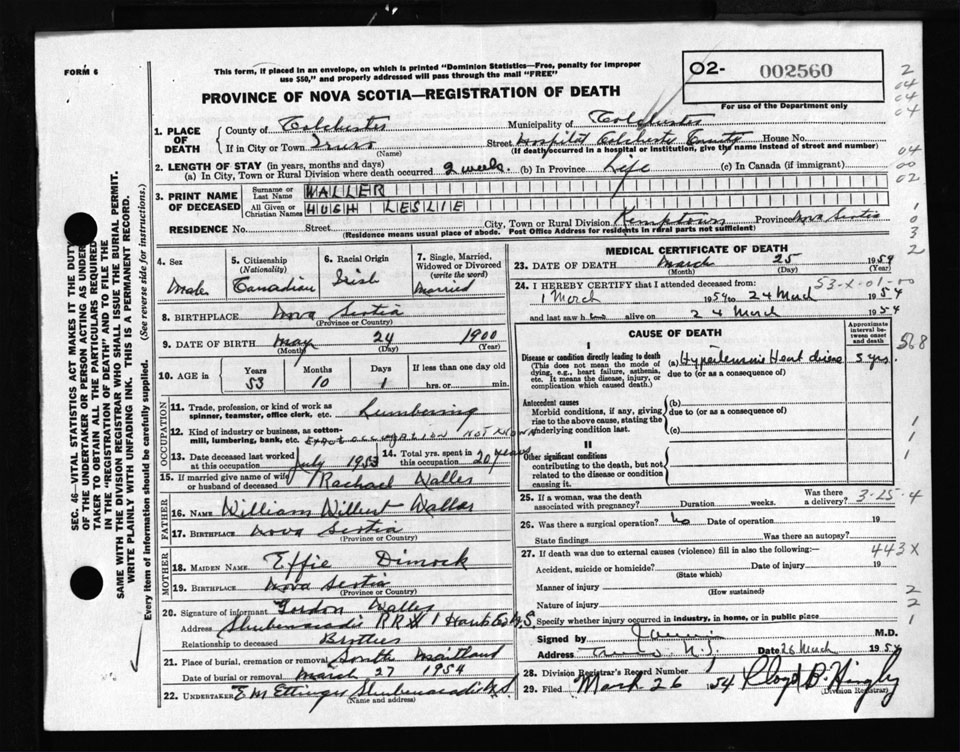 FORM 6
This form, if placed in an envelope, on which is printed "Dominion Statistics—Free, penalty for improper
use $50," and properly addressed will pass through the mail "FREE"
O2- 002560
For use of the Department only
PROVINCE OF NOVA SCOTIA—REGISTRATION OF DEATH
1. PLACE OF DEATH { County of Colchester Municipality of Colchester
If in City or Town Truro (Name) Street Hospital Colchester County House No.
(If death occurred in a hospital or institution, give the name instead of street and number)
2. LENGTH OF STAY (in years, months and days)
(a) In City, Town or Rural Division where death occurred 2 weeks. (b) In Province Life (c) In Canada (if immigrant)
3. PRINT NAME OF DECEASED { Surname or Last Name WALLER
All Given or Christian Names HUGH LESLIE
RESIDENCE No. Street City, Town or Rural Division Kemptown Province Nova Scotia
(Residence means usual place of abode. Post Office Address for residents in rural parts not sufficient)
4. Sex Male
5. Citizenship (Nationality) Canadian
6. Racial Origin Irish
7. Single, Married, Widowed or Divorced (write the word) Married
8. BIRTHPLACE Nova Scotia
(Province or Country)
9. DATE OF BIRTH May 24 1900
(Month) (Day) (Year)
10. AGE in { Years 53 Months 10 Days 1 If less than one day old hrs. or min.
OCCUPATION
11. Trade, profession, or kind of work as spinner, teamster, office clerk, etc. Lumbering
12. Kind of industry or business, as cotton-mill, lumbering, bank, etc. EXACT OCCUPATION NOT KNOWN
13. Date deceased last worked at this occupation July 1953
14. Total yrs. spent in this occupation 20 years
15. If married give name of wife or husband of deceased Rachael Waller
FATHER
16. NAME William Wilbert Waller
17. BIRTHPLACE Nova Scotia
(Province or Country)
MOTHER
18. MAIDEN NAME Effie Dimock
19. BIRTHPLACE Nova Scotia
(Province or Country)
20. Signature of informant Gordon Waller
Address Shubenacadie RR# 1 Hants Co N.S.
Relationship to deceased Brother
21. Place of burial, cremation or removal South Maitland
Date of burial or removal March 27 1954
22. UNDERTAKER E M Ettinger Shubenacadie N.S.
(Name and address)
MEDICAL CERTIFICATE OF DEATH
23. DATE OF DEATH March 25 1954
(Month) (Day) (Year)
24. I HEREBY CERTIFY that I attended deceased from: 53-X-01-00
1 March 1954 to 24 March 1954
and last saw h im alive on 24 March 1954
CAUSE OF DEATH
Approximate interval between onset and death
I
Disease or condition directly leading to death (a) Hypertensive Heart disease 5 yrs.
(This does not mean the mode of dying, e.g., heart failure, asthenia, etc. It means the disease, injury, or complication which caused death.)
due to (or as a consequence of)
Antecedent causes
Morbid conditions, if any, giving rise to the above cause, stating the underlying condition last.
(b)
due to (or as a consequence of)
(c)
II
Other significant conditions
contributing to the death, but not related to the disease or condition causing it.
25. If a woman, was the death associated with pregnancy? Duration weeks. Was there a delivery? 3-25-4
26. Was there surgical operation? No Date of operation 19
State findings Was there an autopsy?
27. If death was due to external causes (violence) fill in also the following:— 443X
Accident, suicide or homicide? Date of injury 19
(State which)
Manner of injury
(How sustained)
Nature of injury
Specify whether injury occurred in industry, in home, or in public place
Signed by M.D.
Address Truro N.S. Date 26 March 1954
28. Division Registrar's Record Number
29. Filed March 26 1954 Lloyd B. Hingley
(Division Registrar)
SEC. 46—VITAL STATISTICS ACT MAKES IT THE DUTY
OF THE UNDERTAKER OR PERSON ACTING AS UNDER-
TAKER TO OBTAIN ALL THE PARTICULARS REQUIRED
IN THE "REGISTRATION OF DEATH" AND TO FILE THE
SAME WITH THE DIVISION REGISTRAR WHO SHALL ISSUE THE BURIAL PERMIT.
WRITE PLAINLY WITH UNFADING INK. THIS IS A PERMANENT RECORD.
Every item of information should be carefully supplied. (See reverse side for instructions.)